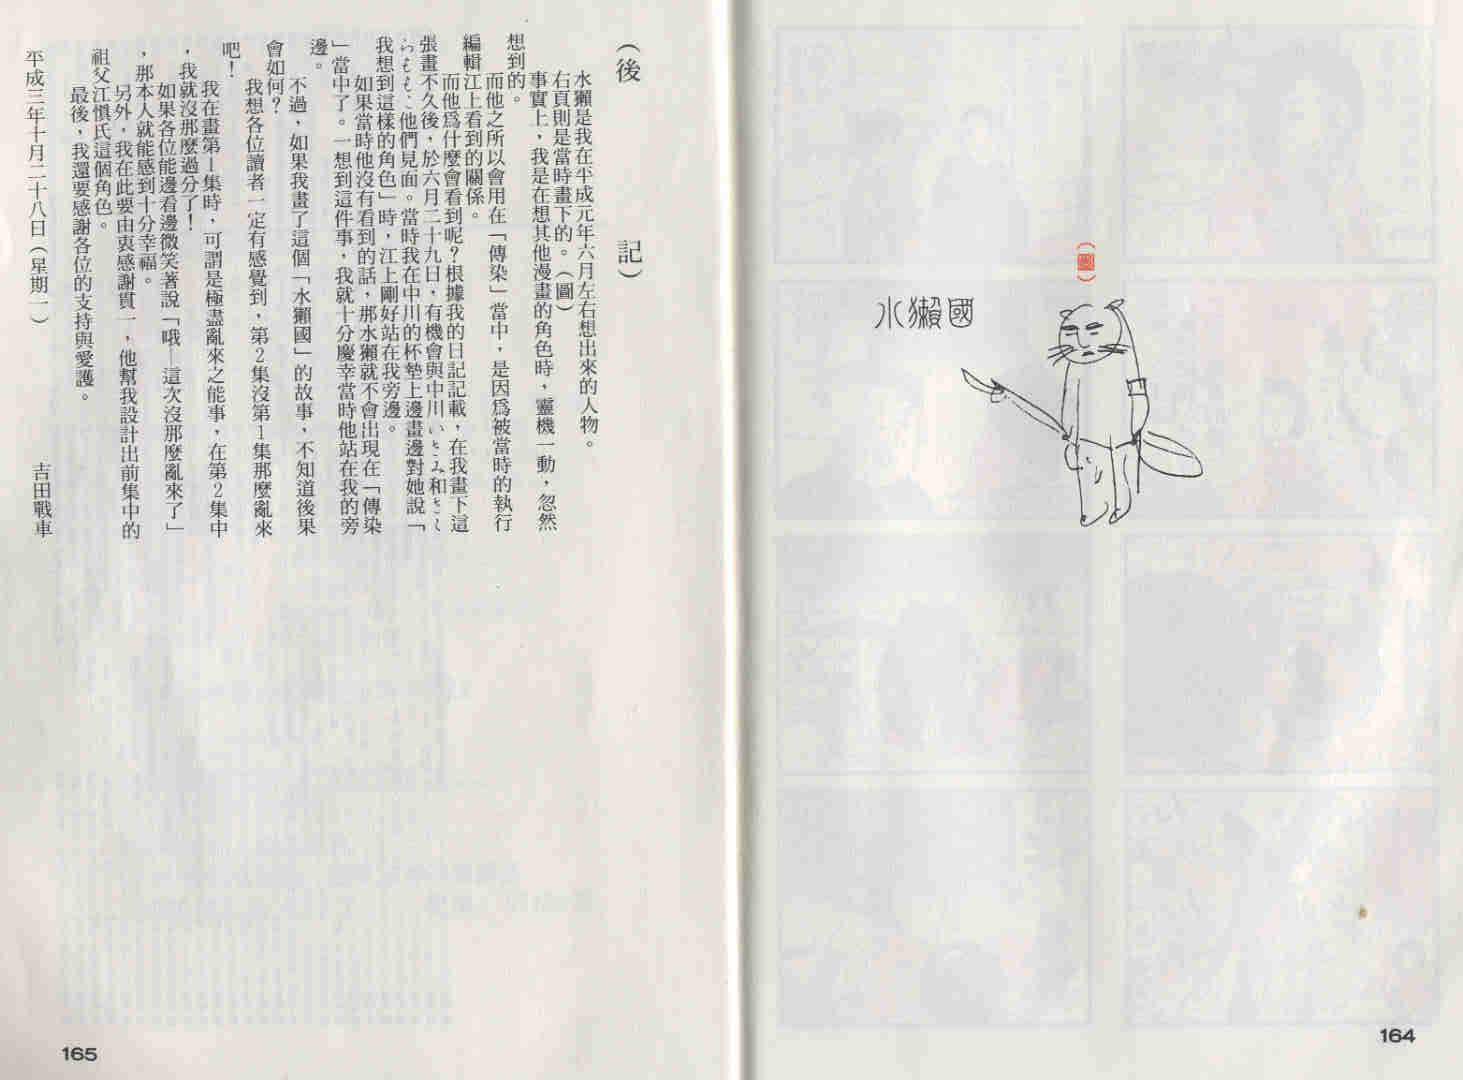 (圖)
水獺國
164
(後記)
水獺是我在平成元年六月左右想出來的人物。
右頁則是當時畫下的。(圖)
事實上，我是在想其他漫畫的角色時，靈機一動，忽然
想到的。
而他之所以會用在「傳染」當中，是因爲被當時的執行
編輯江上看到的關係。
而他爲什麼會看到呢？根據我的日記記載，在我畫下這
張畫不久後，於六月二十九日，有機會與中川いさみ和さく
らももこ他們見面。當時我在中川的杯墊上邊畫邊對她說「
我想到這樣的角色」時，江上剛好站在我旁邊。
如果當時他沒有看到的話，那水獺就不會出現在「傳染
」當中了。一想到這件事，我就十分慶幸當時他站在我的旁
邊。
不過，如果我畫了這個「水獺國」的故事，不知道後果
會如何？
我想各位讀者一定有感覺到，第2集沒第1集那麼亂來
吧！
我在畫第1集時，可謂是極盡亂來之能事，在第2集中
，我就沒那麼過分了！
如果各位能邊看邊微笑著說「哦—這次沒那麼亂來了」
，那本人就能感到十分幸福。
另外，我在此要由衷感謝貫一，他幫我設計出前集中的
祖父江慎氏這個角色。
最後，我還要感謝各位的支持與愛護。
平成三年十月二十八日(星期一)
吉田戰車
165